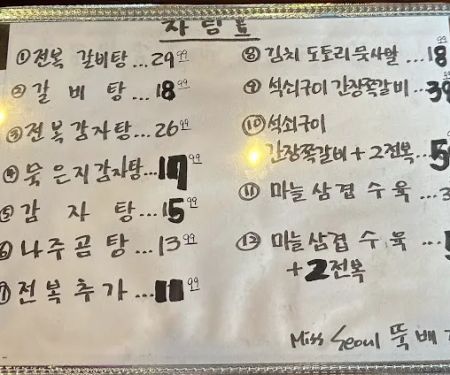 차림표
① 전복 갈비탕...29⁹⁹
② 갈비탕...18⁹⁹
③ 전복감자탕...26⁹⁹
④ 묵은지감자탕...17⁹⁹
⑤ 감자탕...15⁹⁹
⑥ 나주곰탕...13⁹⁹
⑦ 전복추가...11⁹⁹
⑧ 김치 도토리묵사발...18⁹⁹
⑨ 석쇠구이 간장쪽갈비...
⑩ 석쇠구이
간장쪽갈비 + 2전복...
⑪ 마늘삼겹수육...
마늘삼겹수육...
+ 2전복
Miss Seoul 뚝배